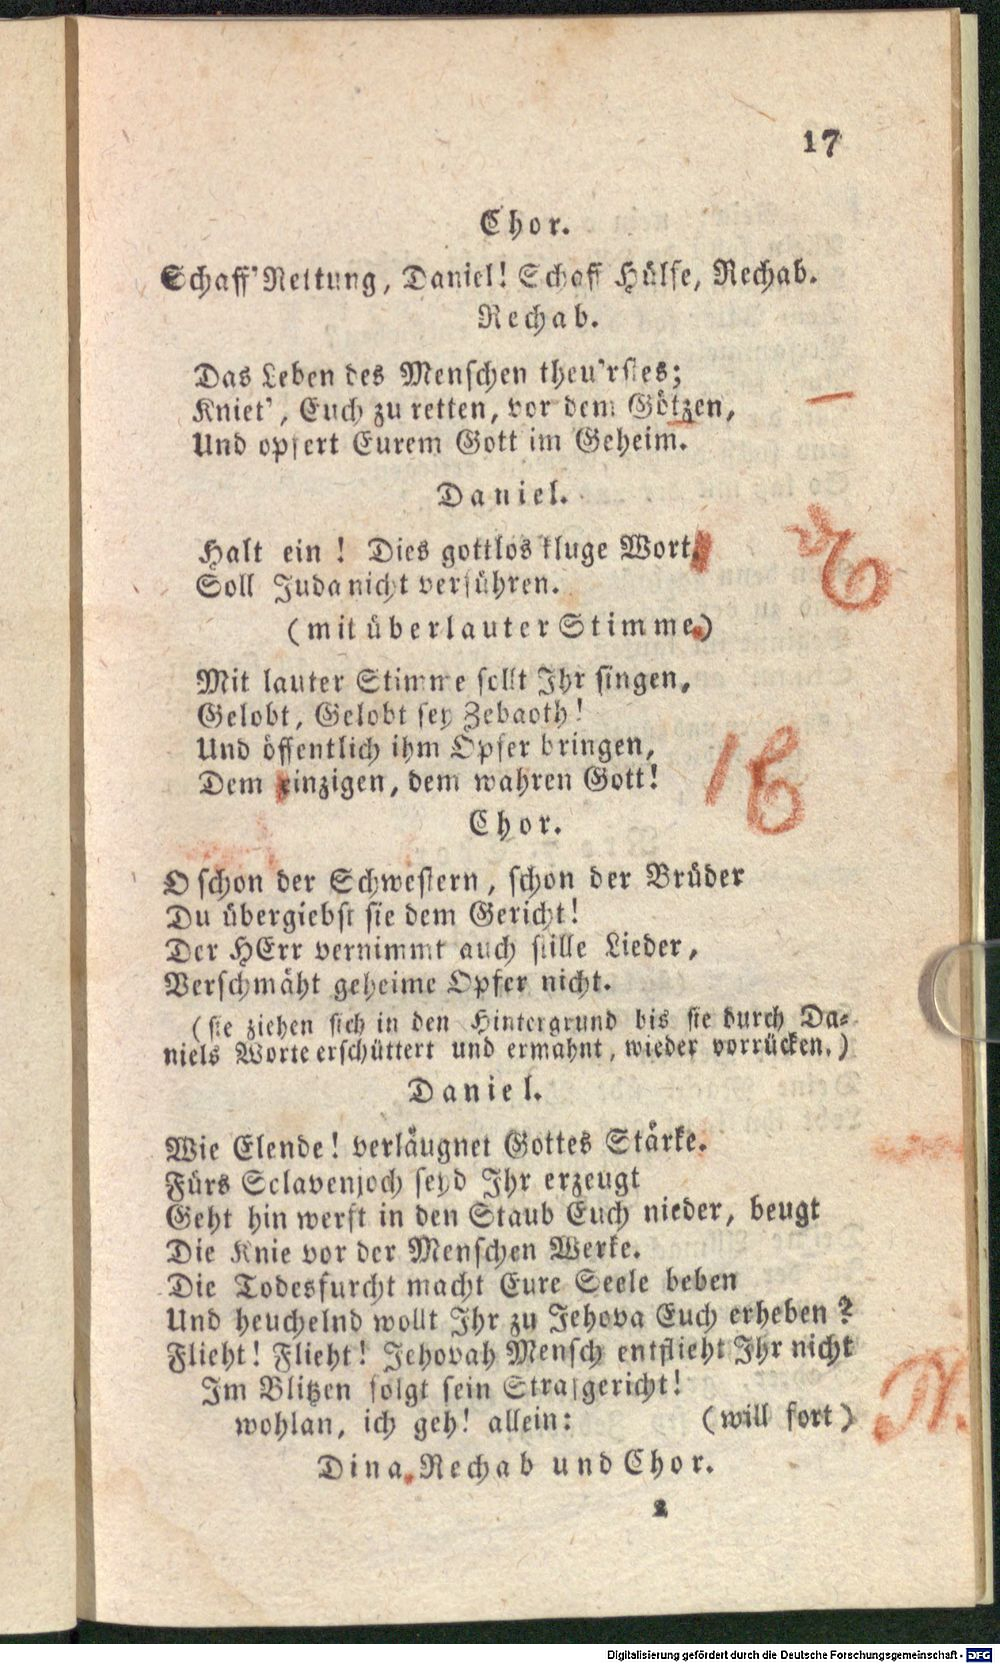 17
Chor.
Schaff' Rettung, Daniel! Schaff Hülfe, Rechab.
Rechab.
Das Leben des Menschen theu'rstes;
Kniet', Euch zu retten, vor dem Götzen,
Und opfert Eurem Gott im Geheim.
Daniel.
Halt ein! Dies gottlos kluge Wort,
Soll Juda nicht verführen.
(mit überlauter Stimme.)
Mit lauter Stimme sollt Ihr singen,
Gelobt, Gelobt sey Zebaoth!
Und öffentlich ihm Opfer bringen,
Dem einzigen, dem wahren Gott!
Chor.
O schon der Schwestern, schon der Brüder
Du übergiebst sie dem Gericht!
Der HErr vernimmt auch stille Lieder,
Verschmäht geheime Opfer nicht.
(sie ziehen sich in den Hintergrund bis sie durch Da-
niels Worte erschüttert und ermahnt, wieder vorrücken.)
Daniel.
Wie Elende! verläugnet Gottes Stärke.
Fürs Sclavenjoch seyd Ihr erzeugt
Geht hin werft in den Staub Euch nieder, beugt
Die Knie vor der Menschen Werke.
Die Todesfurcht macht Eure Seele beben
Und heuchelnd wollt Ihr zu Jehova Euch erheben?
Flieht! Flieht! Jehovah Mensch entflieht Ihr nicht
Im Blitzen folgt sein Strafgericht!
wohlan, ich geh! allein: (will fort)
Dina, Rechab und Chor.
2
Digitalisierung gefördert durch die Deutsche Forschungsgemeinschaft - DFG